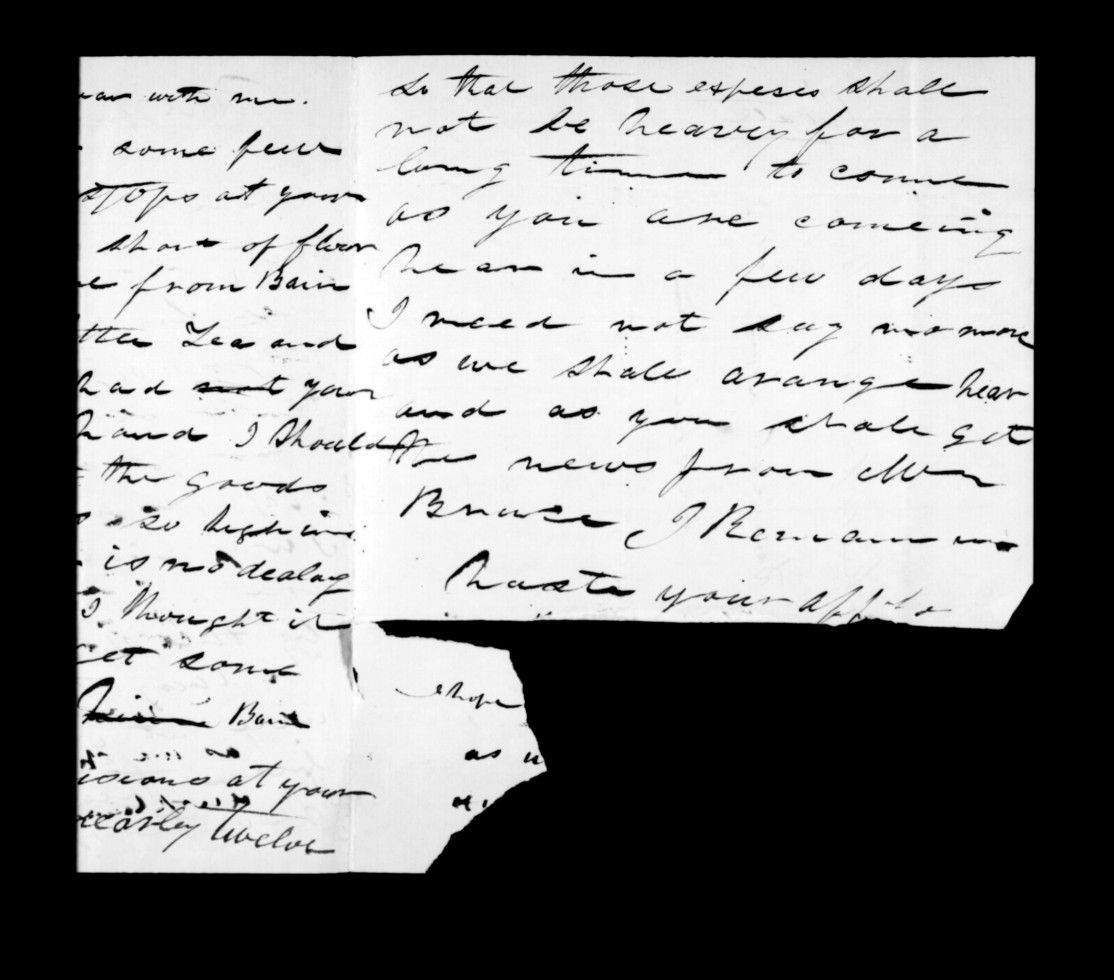 with me.
some few
stops at your
short of flour
from Bain
Tea and
had not your
hand I should
the goods
so high in
is no dealing
I thought it
get some
him Bain
at your
Twelve
so that those expeses shall
not be heavey for a
long time to come
as you are comeing
hear in a few days
I need not say no more
as we shall arange hear
and as you shall get
the news from Mr
Bruce I Remain in
haste your aff
shope
as